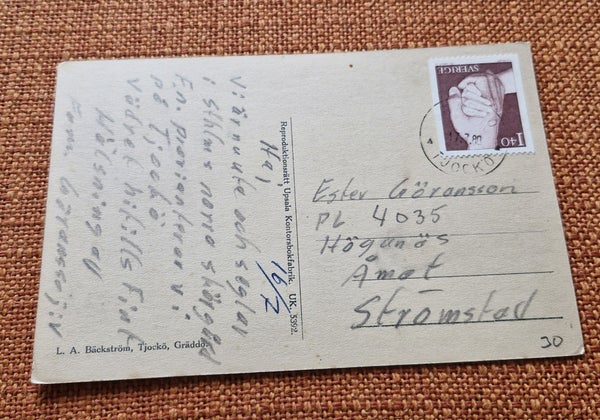 Hej,
Vi är nu ute och seglar
i Sthlms norra skärgård
En på
på Tjockö.
Vädret hitills fint
Hälsningar
Fam. Göransson
16/7
Reproduktionsrätt Upsala Kontorsbokfabrik. UK. 5392.
L. A. Bäckström, Tjockö, Gräddö.
SVERIGE
1.40
TJOCKÖ
Ester Göransson
PL 4035
Höganäs
Åmot
Strömstad
30